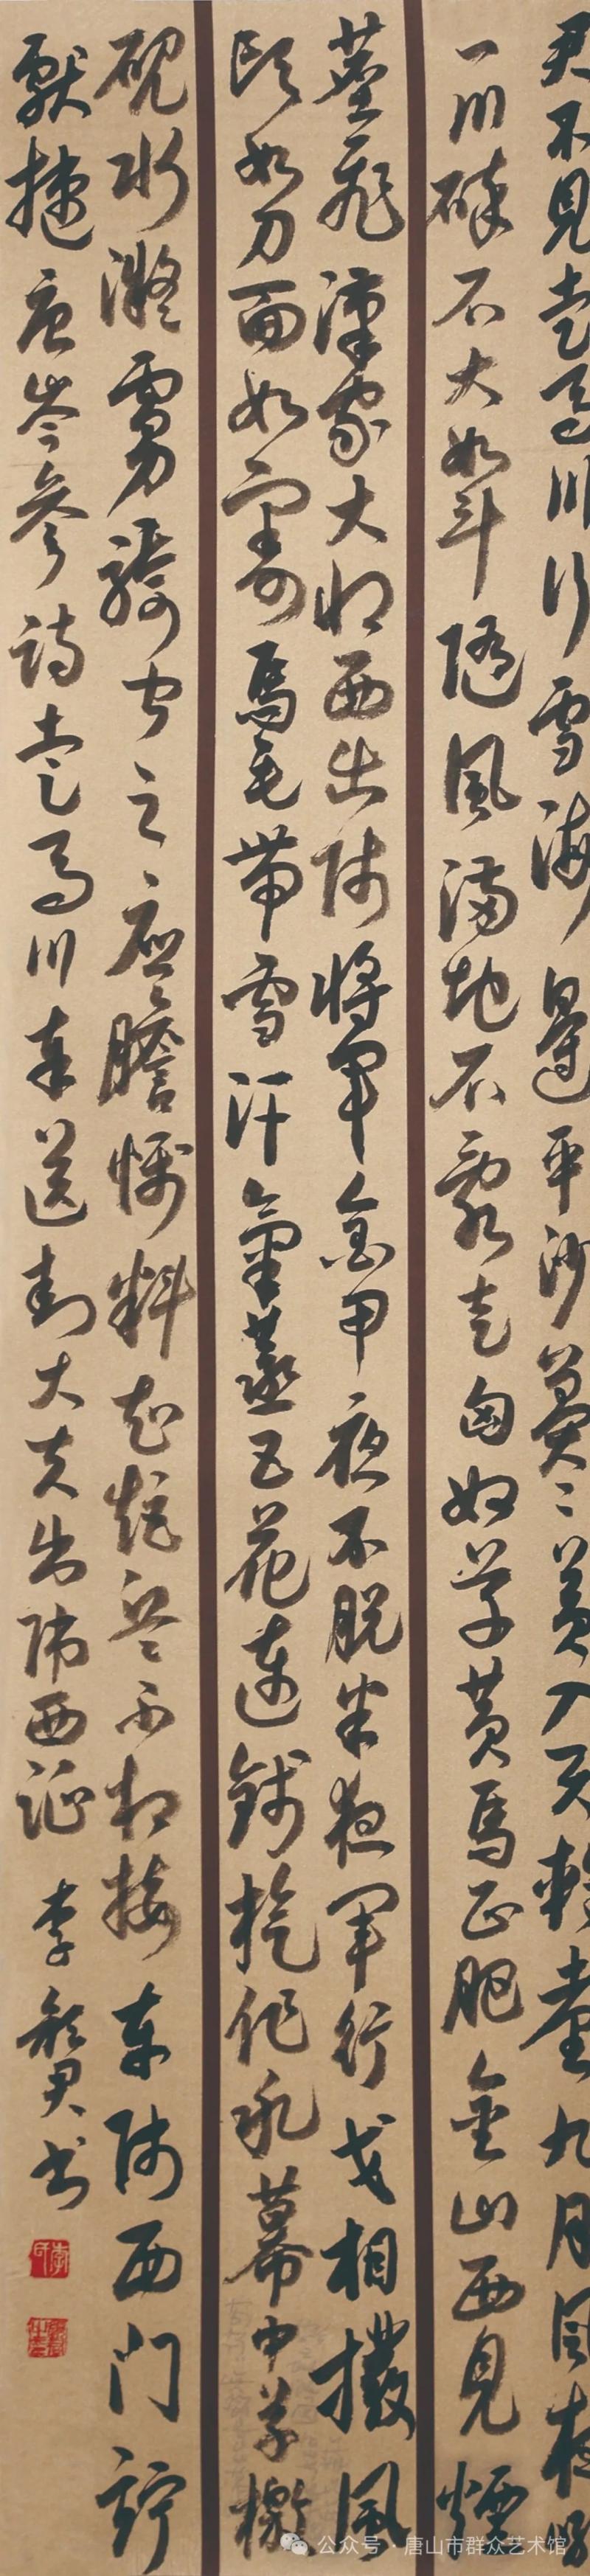 君不見走馬川行雪海邊平沙莽〻黃入天輪臺九月風夜吼
一川碎石大如斗隨風滿地石亂走匈奴草黃馬正肥金山西見煙
塵飛漢家大將西出師將軍金甲夜不脫半夜軍行戈相撥風
頭如刀面如割馬毛帶雪汗氣蒸五花連錢旋作冰幕中草檄
硯水凝虜騎聞之應膽懾料知短兵不相接車師西門佇
獻捷唐岑參詩走馬川奉送封大夫出師西征 李書
公众号·唐山市群众艺术馆